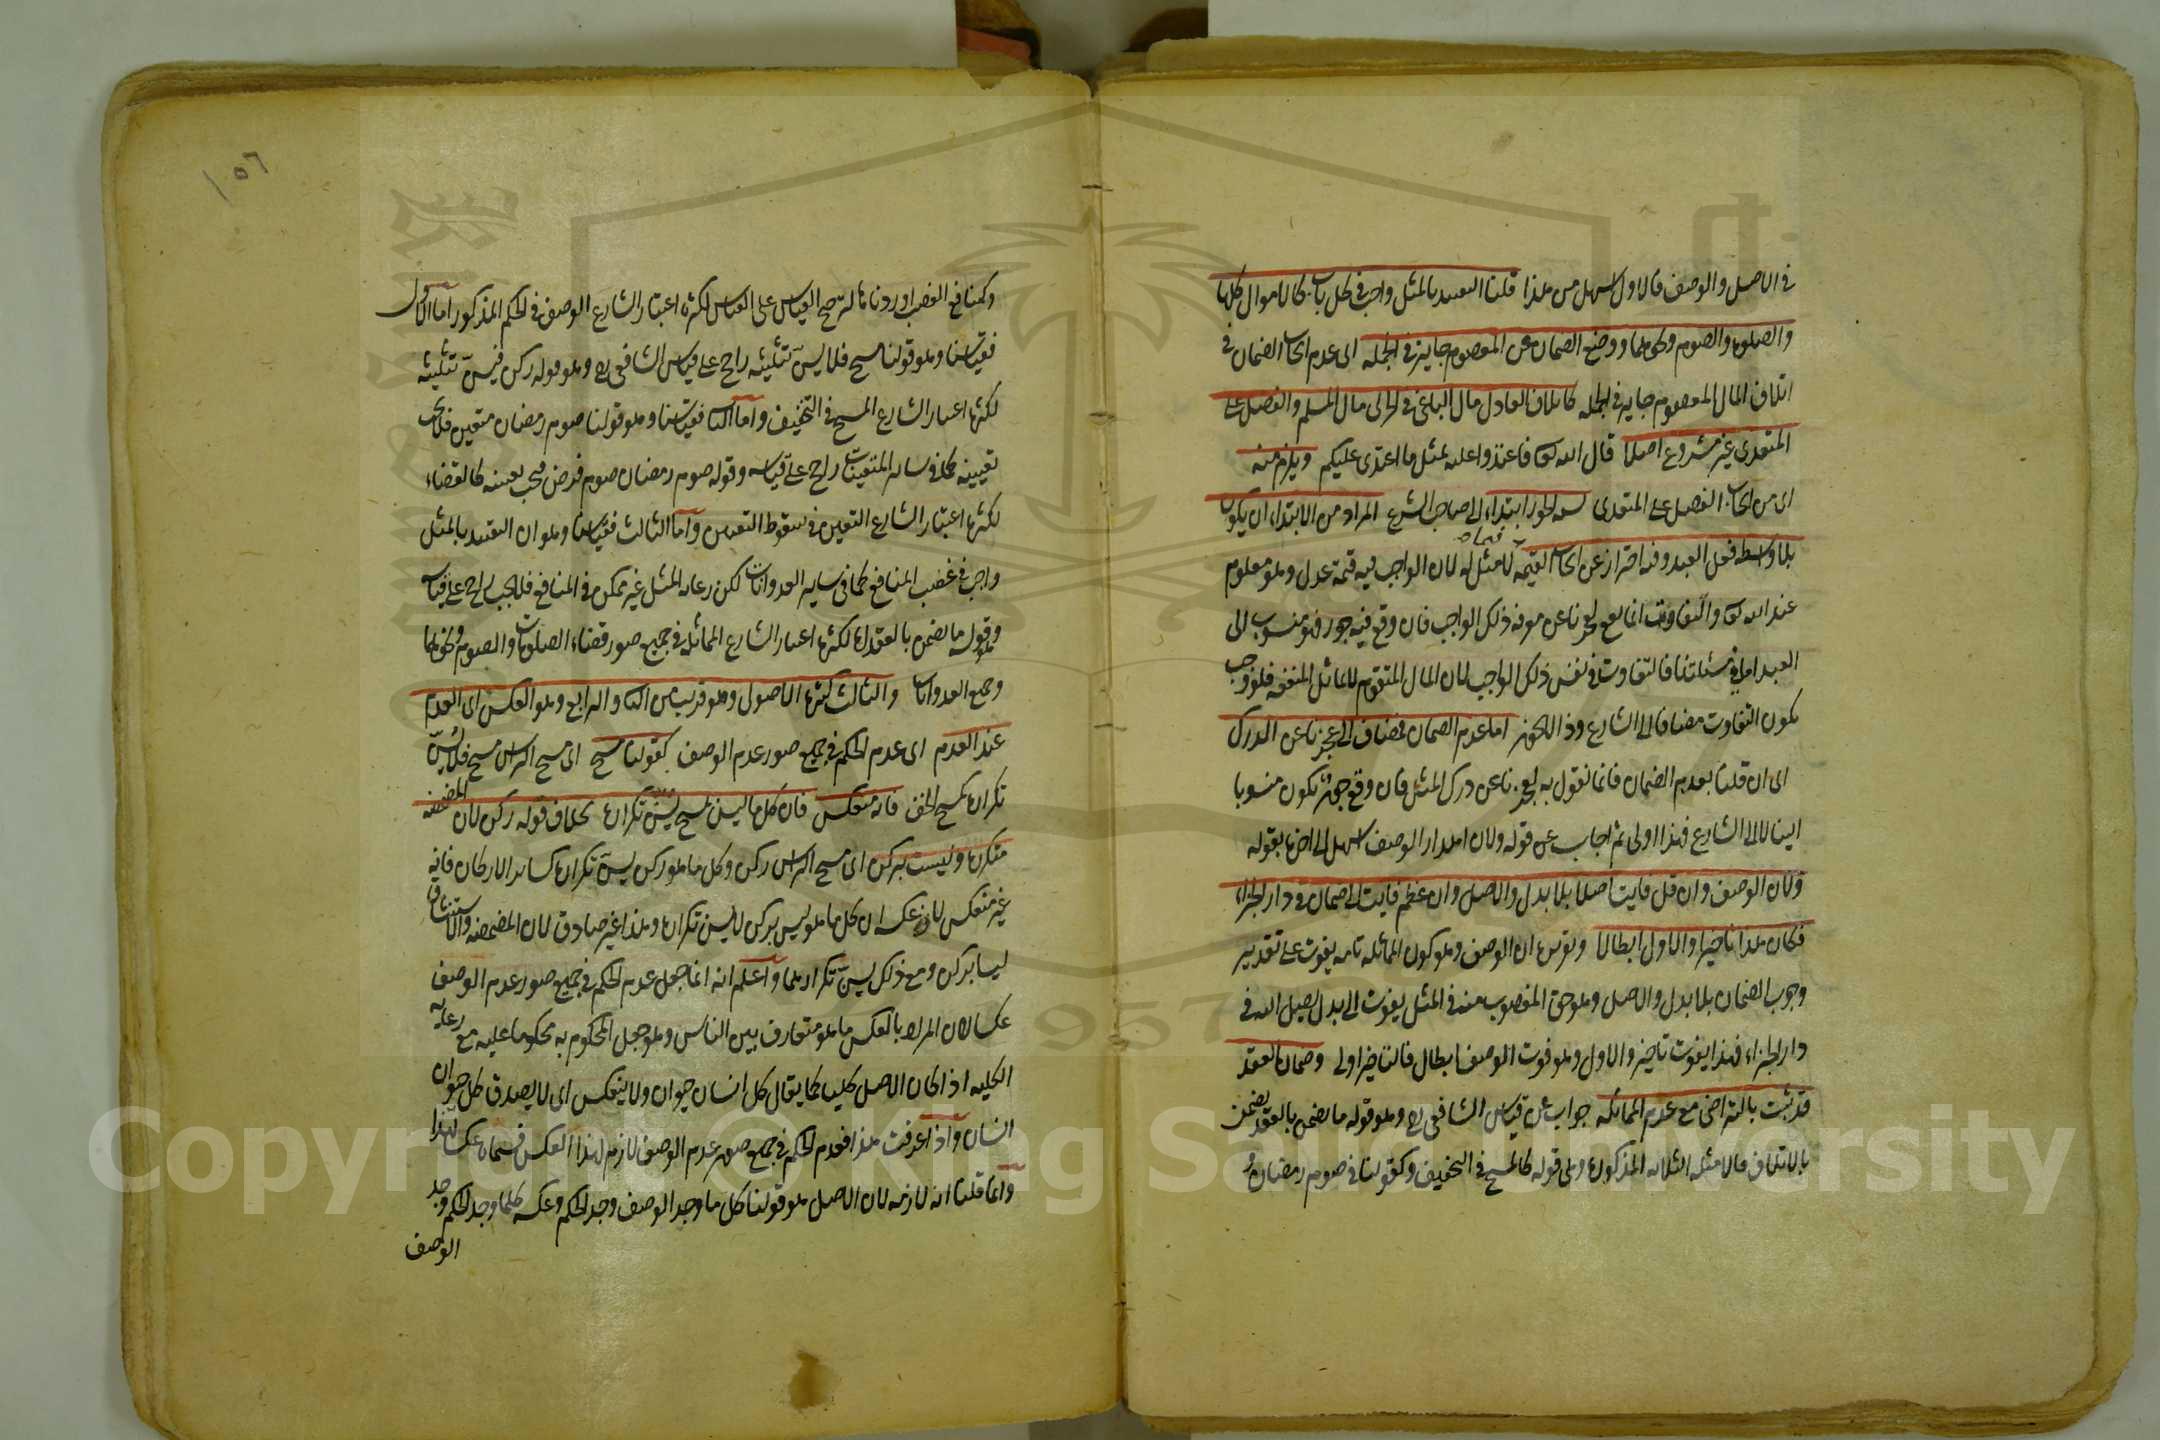 في الاصل والوصف فالاول اسهل من هذا قلنا التقييد بالمثل واجب في كل باب كالاموال كلها
والصلوة والصوم وغيرهما ووضع الضمان عن المعصوم جايز في الجملة اى عدم ايجاب الضمان في
اتلاف المال المعصوم جايز في الجملة كاتلاف العادل مال الباغى في الحرب مال المسلم والفضل على
المتعدى غير مشروع اصلا قال الله تعالى فاعتدوا عليه بمثل ما اعتدى عليكم ويلزم منه
اى من ايجاب الفضل على المتعدى نسبة الجور ابتداء الى صاحب الشرع المراد من الابتداء ان يكون
بلا واسطة فعل العبد وفيه احتراز عن ايجاب القيمة فيما لا مثل له لان الواجب فيه قيمة عدل وهو معلوم
عند الله تعالى والتفاوت انما يقع لعجزنا عن معرفة ذلك الواجب فان وقع فيه جور فهو منسوب الى
العبد اما في مسئلتنا فالتفاوت في نفس ذلك الواجب لان المال المتقوم لا يماثل المنفعة فلو وجب
يكون التفاوت مضافا الى الشارع وذا لا يجوز اما عدم الضمان فمضاف الى عجزنا عن الدرك
اى ان قلنا بعدم الضمان فانما نقول به لعجزنا عن درك المثل فان وقع جور يكون منسوبا
الينا لا الى الشارع فهذا اولى ثم اجاب عن قوله ولان اهدار الوصف اسهل الى اخره بقوله
ولان الوصف وان قل فايت اصلا بلا بدل والاصل وان عظم فايت الى ضمان في دار الجزاء
فكان هذا تاخيرا والاول ابطالا وتقريره ان الوصف وهو كون المماثلة تامة يفوت على تقدير
وجوب الضمان بلا بدل والاصل وهو حق المغصوب منه في المثل يفوت الى بدل يصل اليه في
دار الجزاء فهذا يفوت تاخير والاول وهو فوت الوصف ابطال فالتاخير اولى وضمان العقد
قد يثبت بالتراضى مع عدم المماثلة جواب عن قياس الشافعى رح وهو قوله ما يضمن بالعقد يضمن
بالاتلاف فالامثلة الثلاثة المذكورة وهى قوله كالمسح في التخفيف وكقولنا في صوم رمضان
١٥٦
وكمنافع الغصب اوردناها لترجيح القياس على القياس لكثرة اعتبار الشارع الوصف في الحكم المذكور اما الاول
فقياسنا وهو قولنا مسح فلا يسن تثليثه راجح على قياس الشافعى رح وهو قوله ركن فيسن تثليثه
لكثرة اعتبار الشارع المسح في التخفيف واما الثانى فقياسنا وهو قولنا صوم رمضان متعين فلا يجب
تعيينه كما في ساير المتعينات راجح على قياسه وقوله صوم رمضان صوم فرض فيجب تعيينه كالقضاء
لكثرة اعتبار الشارع التعين في سقوط التعيين واما الثالث فقياسنا وهو ان التقييد بالمثل
واجب في غصب المنافع كما في ساير العدوانات لكن رعاية المثل غير ممكن في المنافع فلا يجب راجح على قياسه
وهو قوله ما يضمن بالعقد لكثرة اعتبار الشارع المماثلة في جميع صور قضاء الصلوات والصوم وغيرهما
وجميع العدوانات والثالث كثرة الاصول وهو قريب من الثانى والرابع وهو العكس اى العدم
عند العدم اى عدم الحكم في جميع صور عدم الوصف كقولنا مسح اى مسح الراس مسح فلا يسن
تكراره كمسح الخف فانه منعكس فان كل ما ليس بمسح يسن تكراره بخلاف قوله ركن لان المضمضة
متكررة وليست بركن اى مسح الراس ركن وكل ما هو ركن يسن تكراره كساير الاركان فانه
غير منعكس لان عكسه ان كل ما هو ليس بركن لا يسن تكراره وهذا غير صادق لان المضمضة والاستنشاق
ليسا بركن ومع ذلك يسن تكرارهما واعلم انه انما جعل عدم الحكم في جميع صور عدم الوصف
عكسا لان المراد بالعكس ما هو متعارف بين الناس وهو جعل المحكوم به محكوما عليه مع رعاية
الكلية اذا كان الاصل كليا كما يقال كل انسان حيوان ولا ينعكس اى لا يصدق كل حيوان
انسان واذا عرفت هذا فعدم الحكم في جميع صور عدم الوصف لازم لهذا العكس فسماه عكسا لهذا
وانما قلنا انه لازمه لان الاصل هو قولنا كل ما وجد الوصف وجد الحكم وعكسه كلما وجد الحكم وجد
الوصف
Copyright © King Saud University
1957